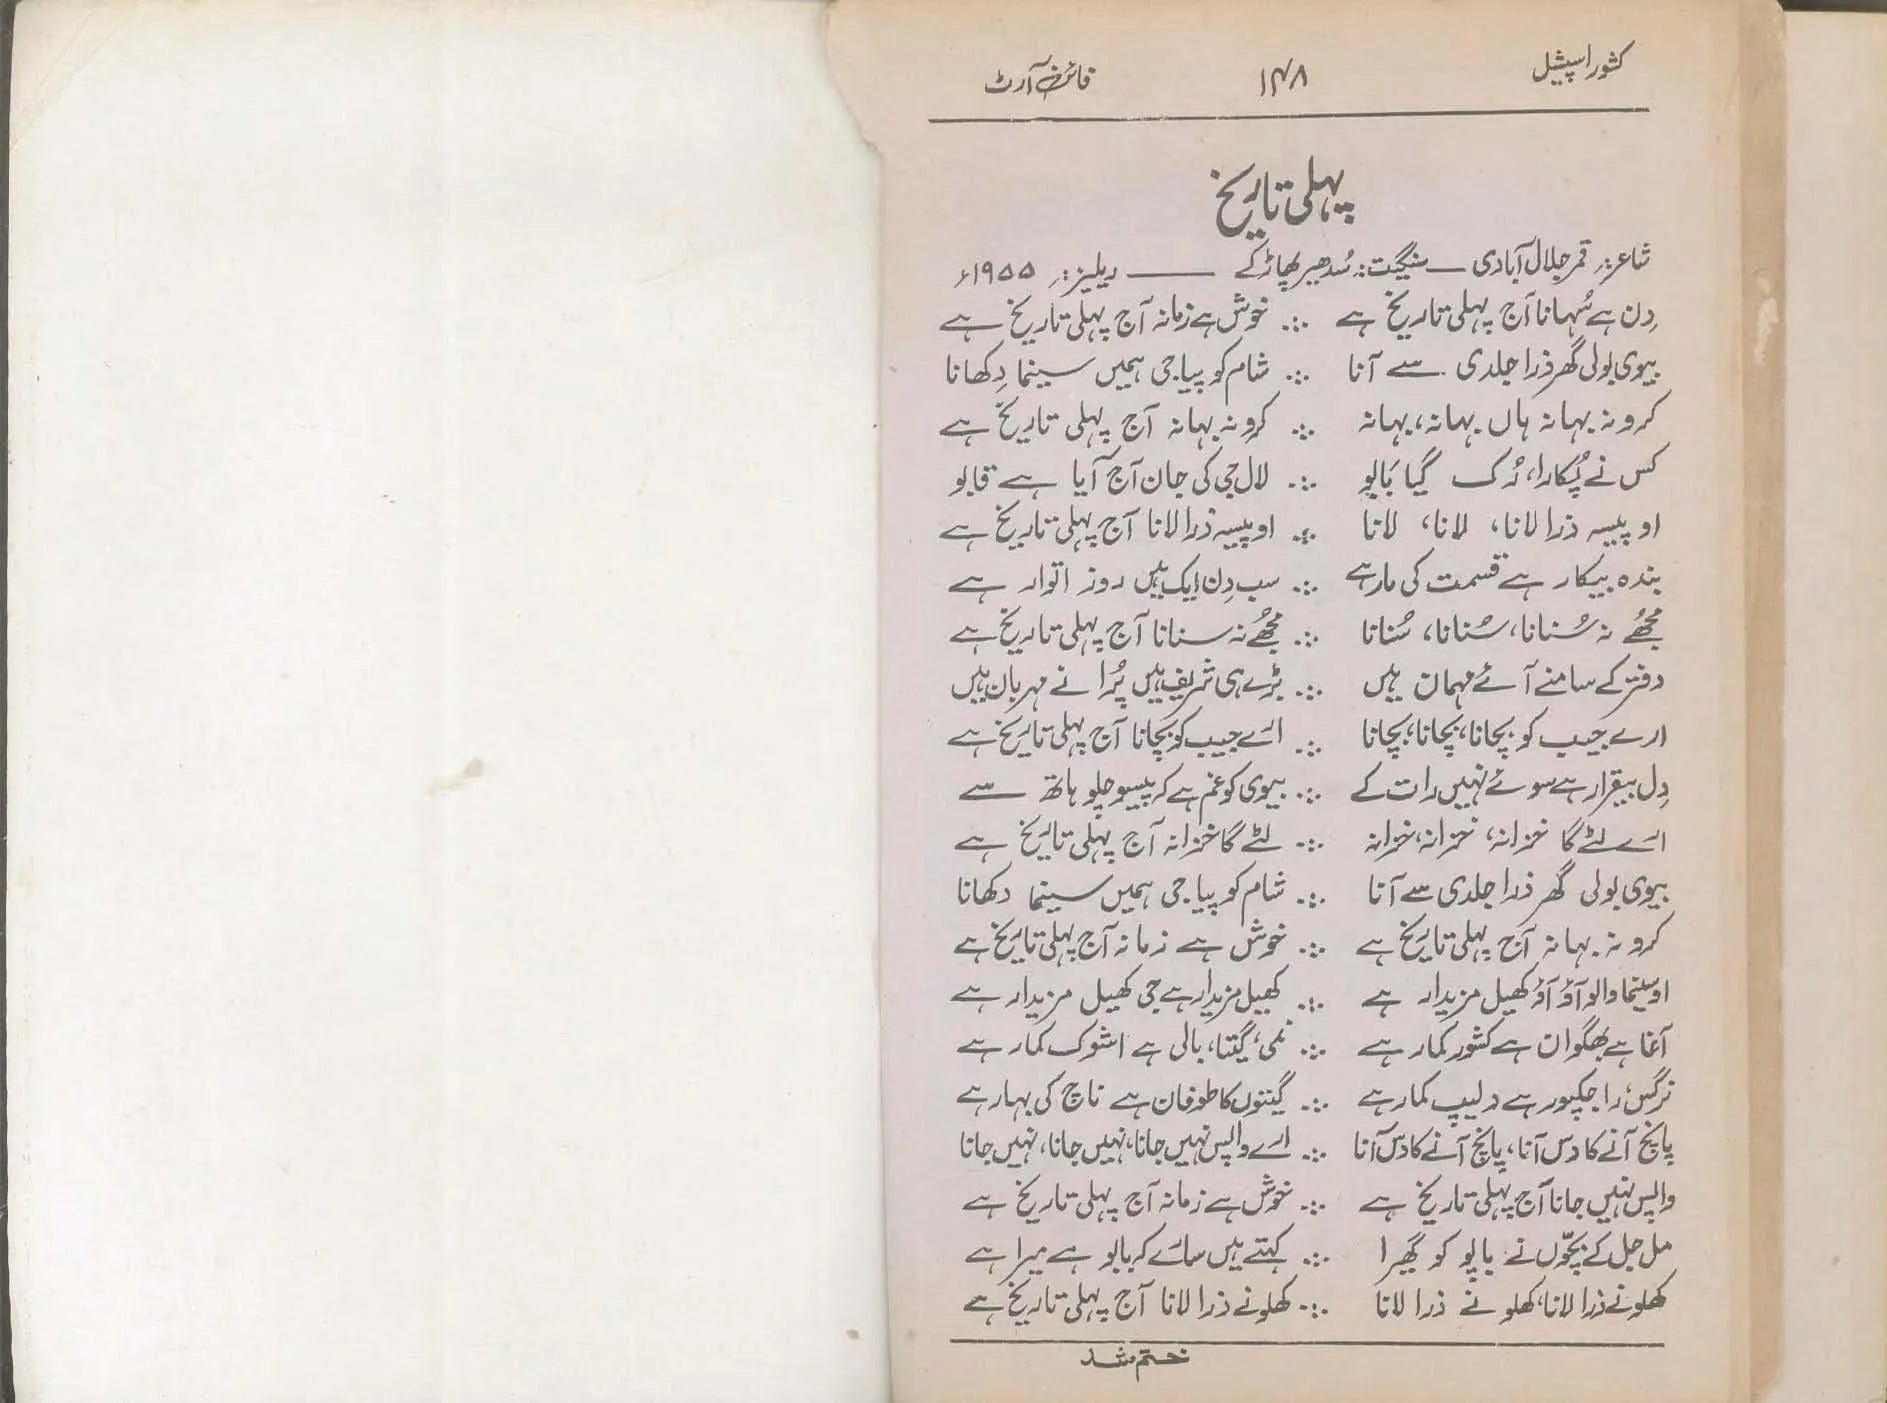 کشور اسپیشل ۱۴۸ فائن آرٹ
پہلی تاریخ
شاعر: قمر جلال آبادی — سنگیت: سُدھیر پھاڑکے — ریلیز: ۱۹۵۵ء
دِن ہے سُہانا آج پہلی تاریخ ہے ∴ خوش ہے زمانہ آج پہلی تاریخ ہے
بیوی بولی گھر ذرا جلدی سے آنا ∴ شام کو پیا جی ہمیں سینما دِکھانا
کرو نہ بہانہ ہاں بہانہ، بہانہ ∴ کرو نہ بہانہ آج پہلی تاریخ ہے
کس نے پُکارا، رُک گیا بَابُو ∴ لال جی کی جان آج آیا ہے قابو
او پیسہ ذرا لانا، لانا، لانا ∴ او پیسہ ذرا لانا آج پہلی تاریخ ہے
بندہ بیکار ہے قسمت کی مار ہے ∴ سب دِن ایک ہیں روز اتوار ہے
مجھُے نہ سُنانا، سُنانا، سُنانا ∴ مجھُے نہ سنانا آج پہلی تاریخ ہے
دفتر کے سامنے آئے مہمان ہیں ∴ بڑے ہی شریف ہیں پُرانے مہربان ہیں
ارے جیب کو بچانا، بچانا، بچانا ∴ ارے جیب کو بچانا آج پہلی تاریخ ہے
دِل بیقرار ہے سوئے نہیں رات کے ∴ بیوی کو غم ہے کہ پیسو چلو ہاتھ سے
ارے لٹے گا خزانہ، خزانہ، خزانہ ∴ لٹے گا خزانہ آج پہلی تاریخ ہے
بیوی بولی گھر ذرا جلدی سے آنا ∴ شام کو پیا جی ہمیں سینما دکھانا
کرو نہ بہانہ آج پہلی تاریخ ہے ∴ خوش ہے زمانہ آج پہلی تاریخ ہے
او سینما والو آؤ آؤ کھیل مزیدار ہے ∴ کھیل مزیدار ہے جی کھیل مزیدار ہے
آغا ہے بھگوان ہے کشور کمار ہے ∴ نمی، گیتا، بالی ہے اشوک کمار ہے
نرگس، راجکپور ہے دلیپ کمار ہے ∴ گیتوں کا طوفان ہے ناچ کی بہار ہے
پانچ آنے کا دس آنا، پانچ آنے کا دس آنا ∴ ارے واپس نہیں جانا، نہیں جانا، نہیں جانا
واپس نہیں جانا آج پہلی تاریخ ہے ∴ خوش ہے زمانہ آج پہلی تاریخ ہے
مل جل کے بچّوں نے بابُو کو گھیرا ∴ کہتے ہیں سارے کہ بابو ہے میرا ہے
کھلونے ذرا لانا، کھلونے ذرا لانا ∴ کھلونے ذرا لانا آج پہلی تاریخ ہے
ختم شد